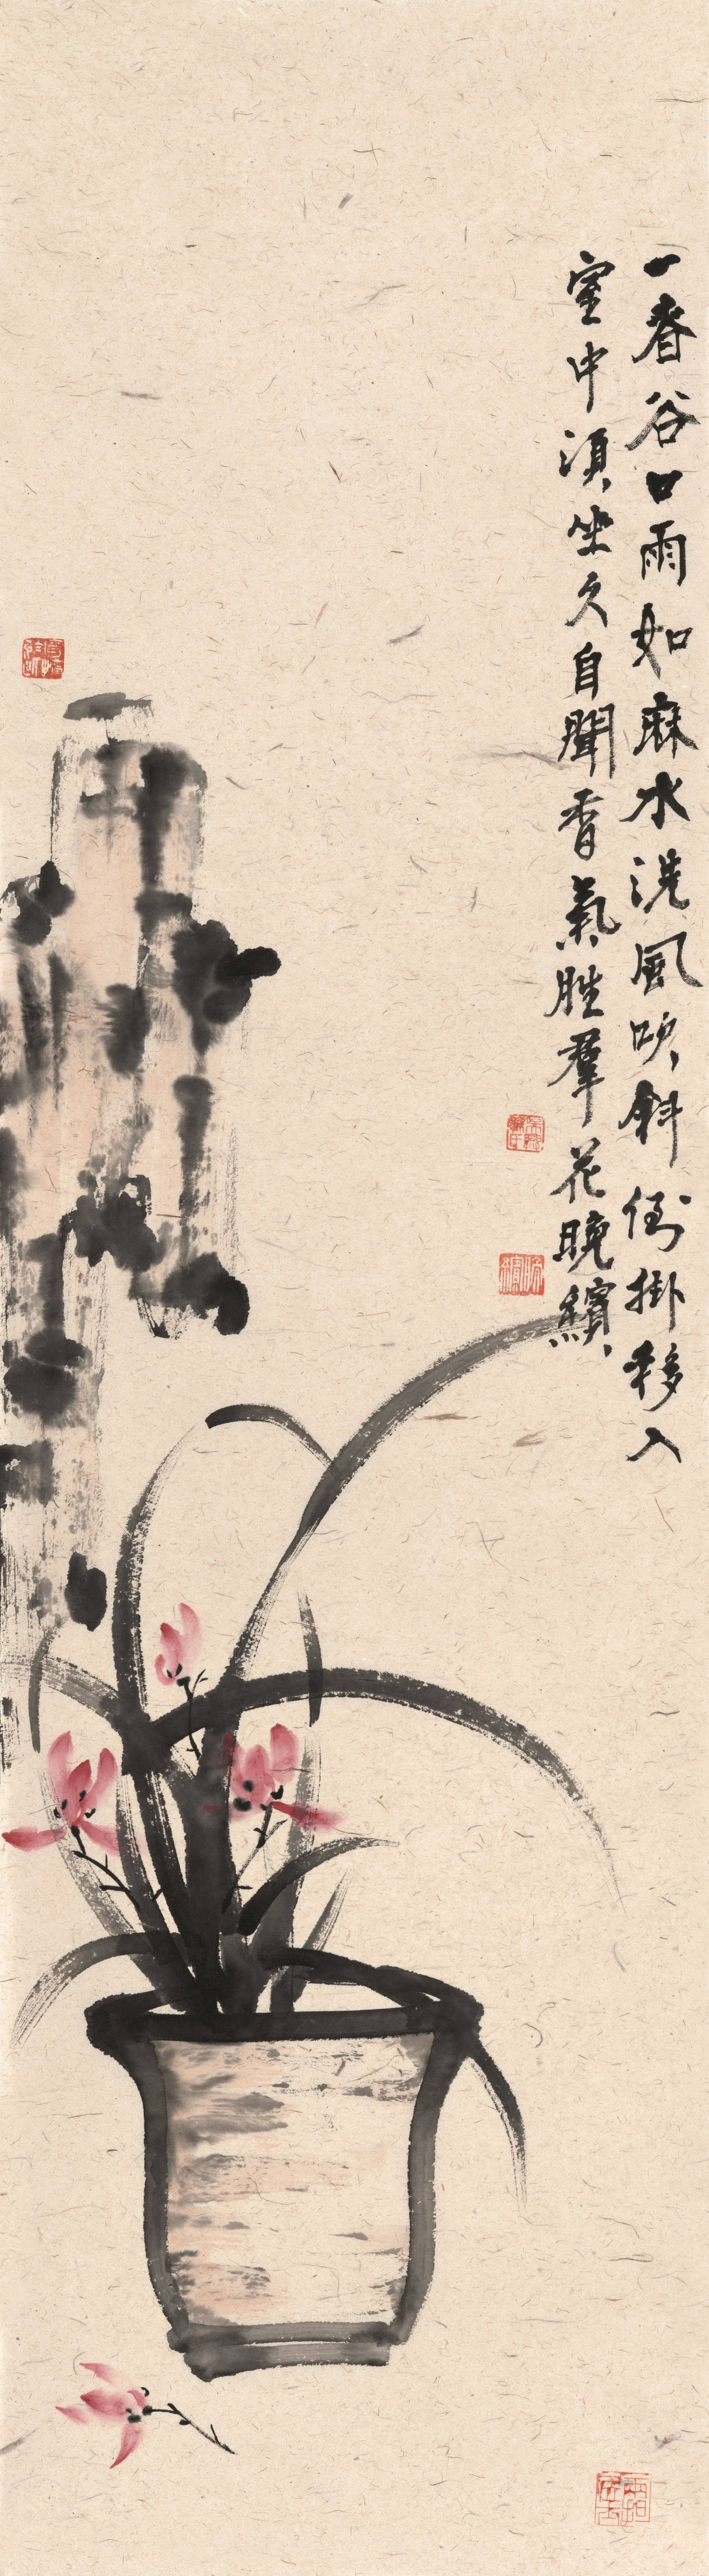 一春谷口雨如麻水洗風吹斜倒掛移入
室中須坐久自聞香氣勝羣花晚繽